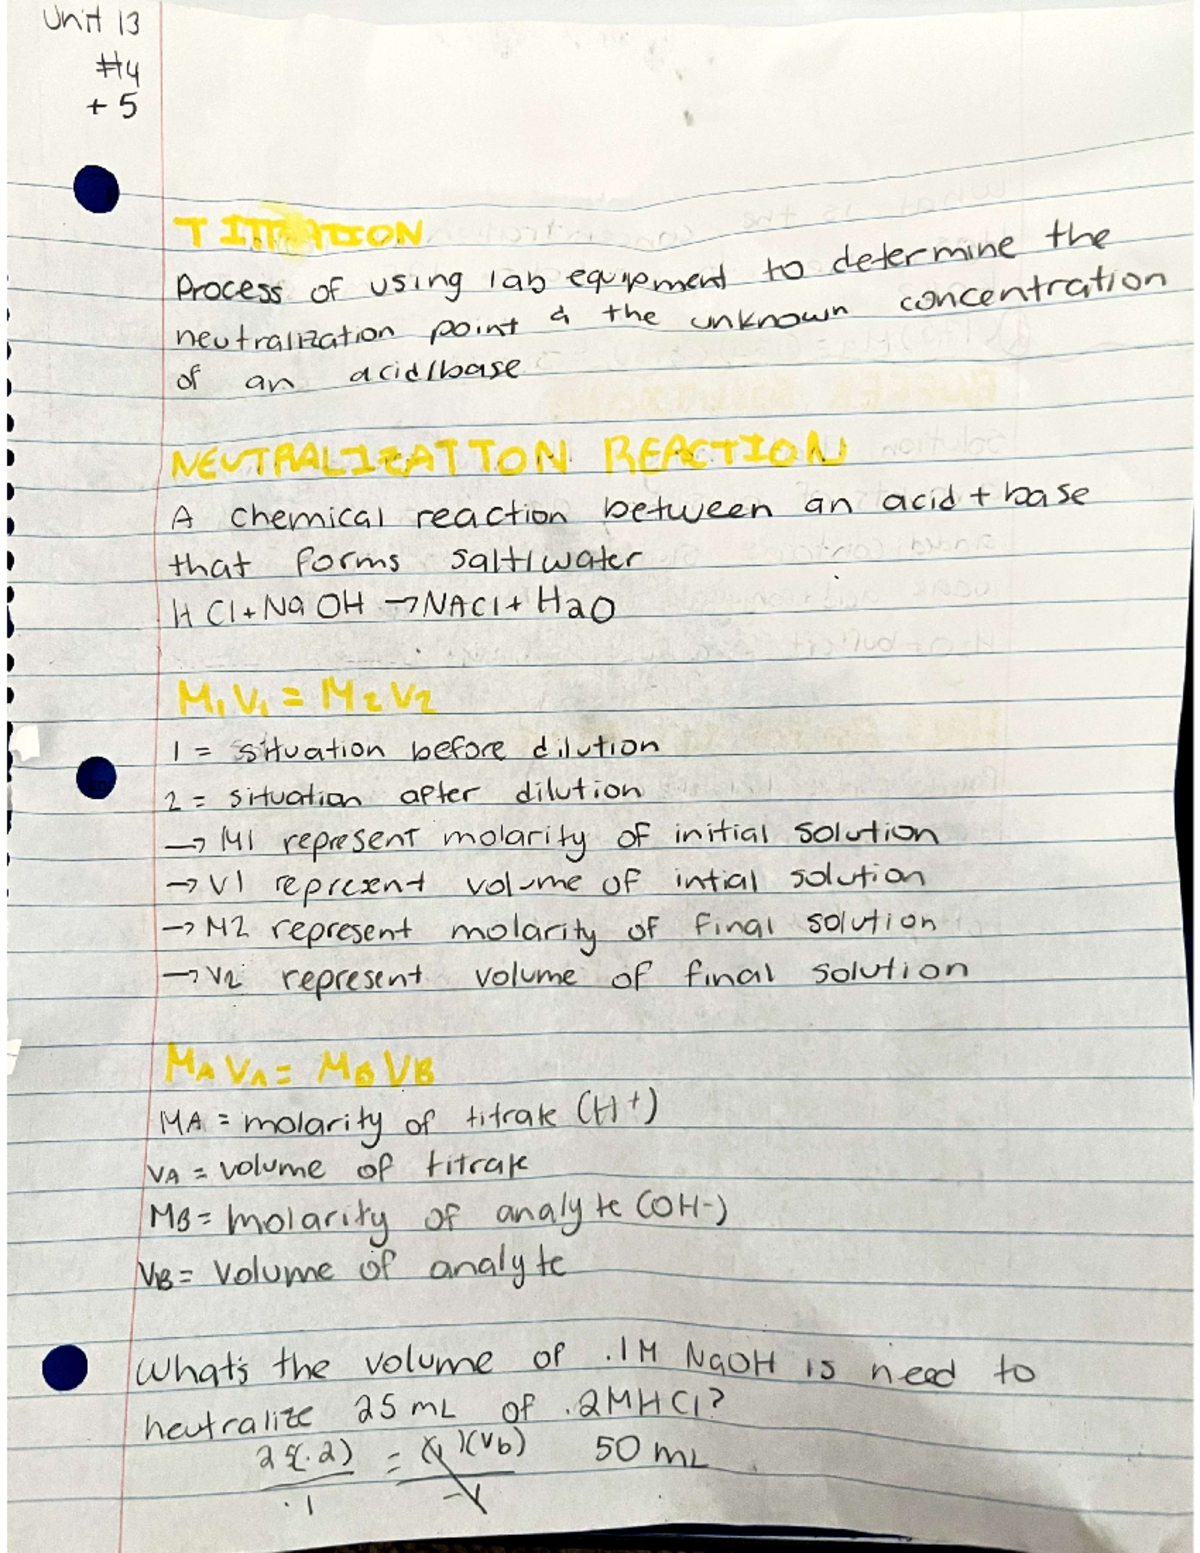 Unit 13
#4
+ 5
TITRATION
Process of using lab equipment to determine the
neutralization point & the unknown concentration
of an acid/base
NEUTRALIZATION REACTION
A chemical reaction between an acid + base
that forms salt/water
HCl + NaOH → NACl + H2O
M1V1 = M2V2
1 = situation before dilution
2 = situation after dilution
→ M1 represent molarity of initial solution
→ V1 represent volume of intial solution
→ M2 represent molarity of final solution
→ V2 represent volume of final solution
MAVA = MBVB
MA = molarity of titrate (H+)
VA = volume of titrate
MB = molarity of analyte (OH-)
VB = Volume of analyte
What's the volume of .1M NaOH is need to
neutralize 25 mL of .2M HCl?
25(.2) = (.1)(Vb) 50 mL
.1 .1